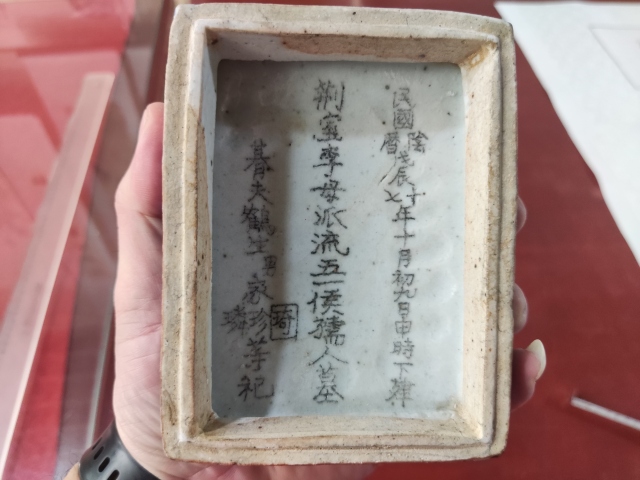 民國陰曆戊辰十七年十月初九日申時下肂
荆室李母派流五一侯孺人墓
暮夫鶴生男家珍琦璘等祀